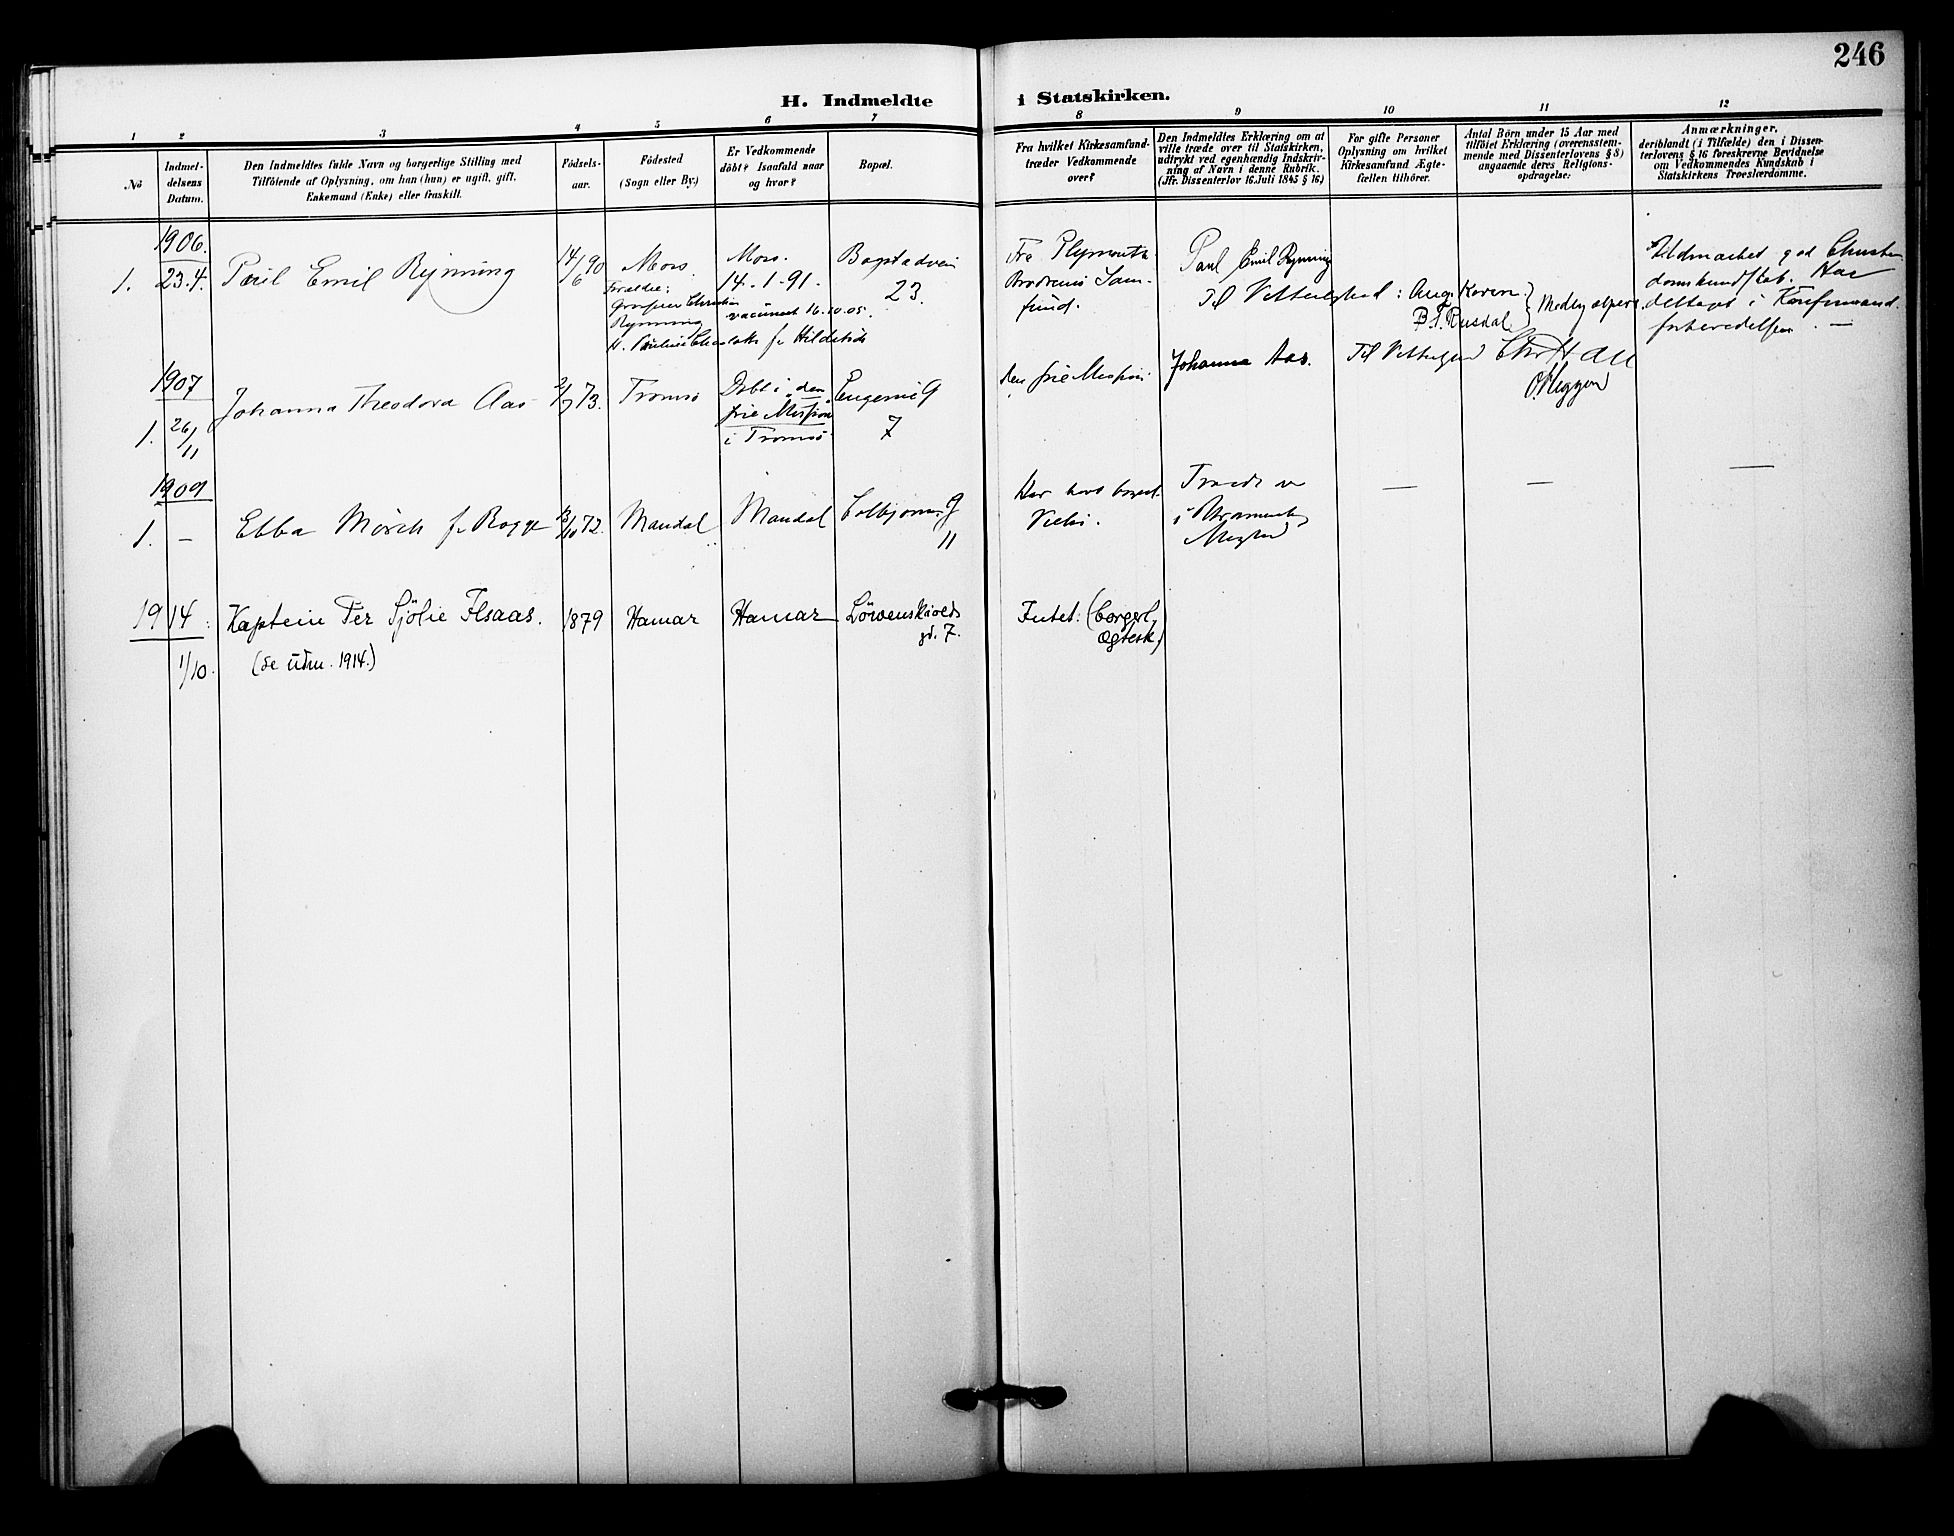 246
H. Indmeldte i Statskirken.
1 2 3 4 5 6 7 8 9 10 11 12
No
Indmel-
delsens
Datum.
Den Indmeldtes fulde Navn og borgerlige Stilling med
Tilföiende af Oplysning, om han (hun) er ugift, gift,
Enkemand (Enke) eller fraskilt.
Födsels-
aar.
Födested
(Sogn eller By.)
Er Vedkommende
döbt? Isaafald naar
og hvor?
Bopæl.
Fra hvilket Kirkesamfund
træder Vedkommende
over?
Den Indmeldtes Erklæring om at
ville træde over til Statskirken,
udtrykt ved egenhændig Indskriv-
ning af Navn i denne Rubrik.
(Jfr. Dissenterlov 16. Juli 1845 § 16.)
For gifte Personer
Oplysning om hvilket
Kirkesamfund Ægte-
fællen tilhörer.
Antal Börn under 15 Aar med
tilföiet Erklæring (overensstem-
mende med Dissenterlovens § 8)
angaaende deres Religions-
opdragelse:
Anmærkninger,
deriblandt (i Tilfælde) den i Dissen-
terlovens § 16 foreskrevne Bevidnelse
om Vedkommendes Kundskab i
Statskirkens Troeslærdomme.
1906.
1. 23.4. Paul Emil Rynning
14/6 90
Moss.
Forældre:
Christian
Rynning
Moss.
14.1.91.
vaccineret 16.10.05.
f. Hildebrdt
Bogstadvei
23.
Fra Plymouth
Brødrenes Sam-
fund.
Paul Emil Rynning
Til Vitterlighed: Aug. Koren
B. T. Rusdal
Udmærket god Christen-
domskundskab. Har
deltaget i Konfirmand
forberedelsen. —
1907
1. 26/11
Johanna Theodora Aas
73.
Tromsø
Døbt i den
frie Mission
i Tromsø
Eugenies G
7
den frie Mission
Johanna Aas.
Til Vitterlighed
1909
1. —
Ebba Mörch f. Bogge
/10 72.
Mandal
Mandal
Colbjørns G
11
Har havt borgerl.
Vielse.
— — —
1914:
1/10.
Kaptein Per Sjölie Flsaas.
(se udm. 1914.)
1879
Hamar
Hamar
Löwenskiolds
gd. 7.
Intet: (borgerl.
ægtesk.)